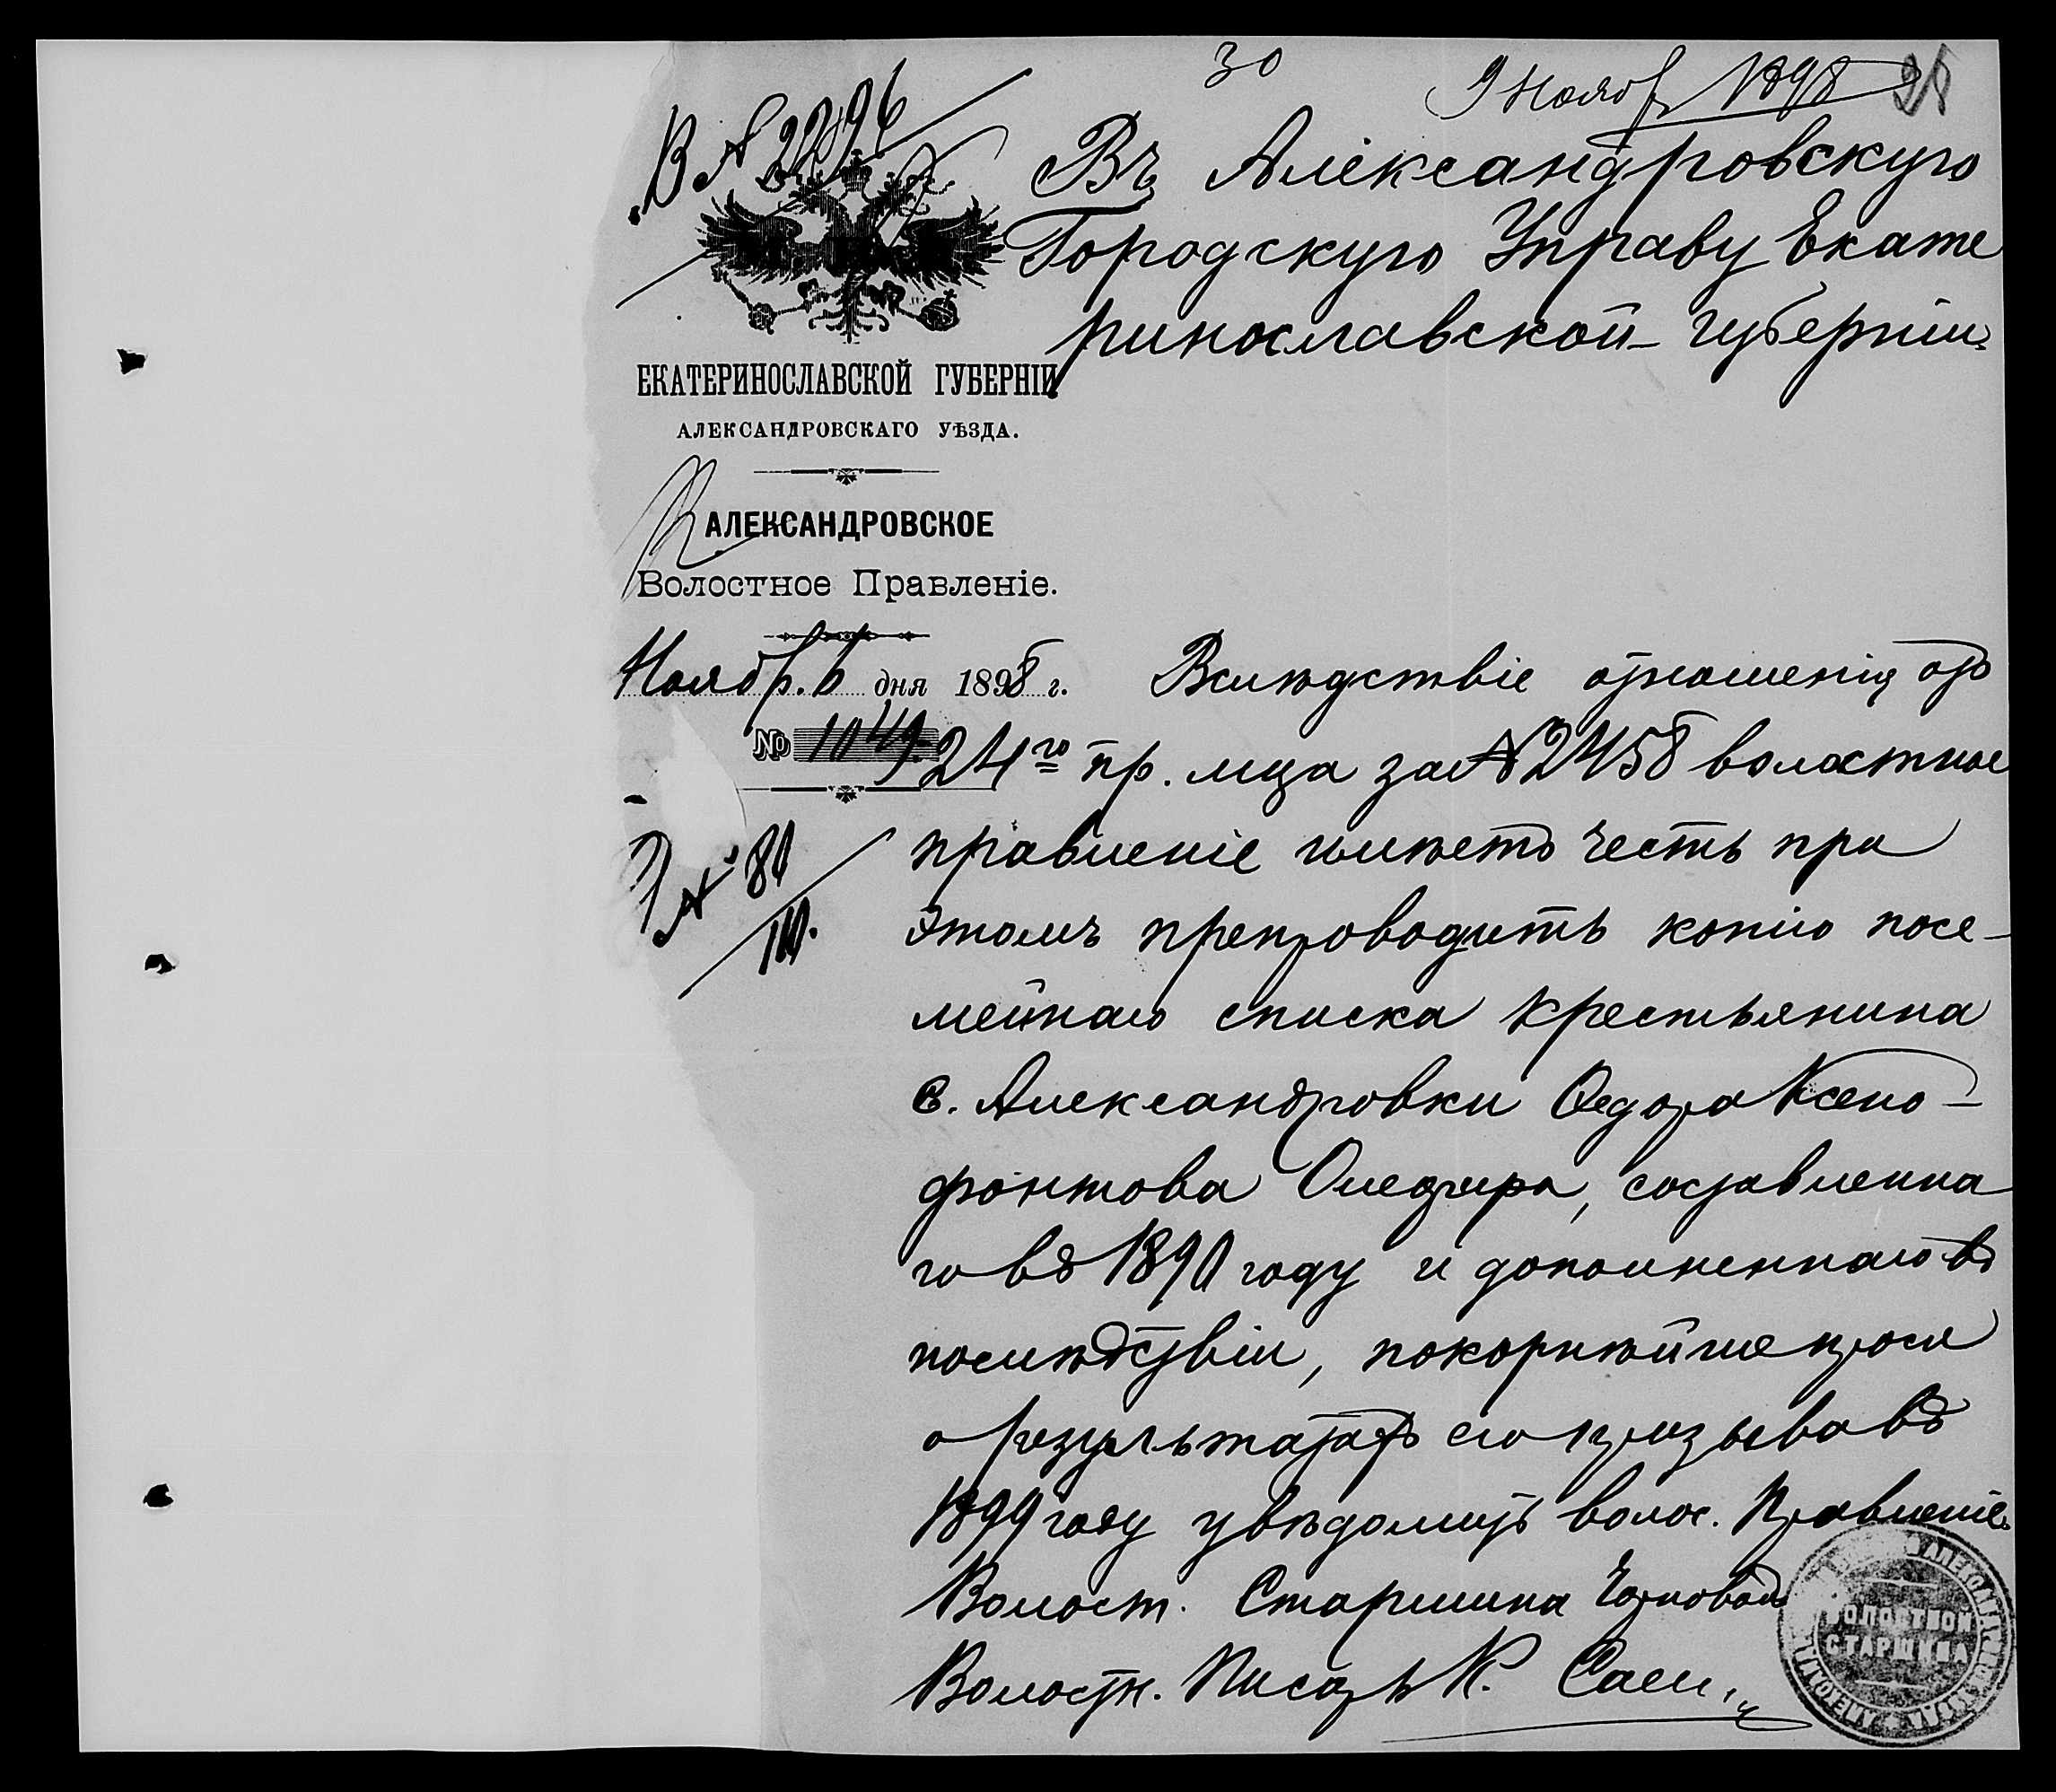 30
9 Ноябр 1898
В № 2296
Въ Александровскую
Городскую Управу Екате
ринославской губерніи.
ЕКАТЕРИНОСЛАВСКОЙ ГУБЕРНІИ
АЛЕКСАНДРОВСКАГО УѢЗДА.
АЛЕКСАНДРОВСКОЕ
Волостное Правленіе.
Ноябр. 6 дня 1898 г.
№ 1049.
Вслѣдствіе отношенія отъ
24го пр. мца за № 2458 волостное
правленіе имѣетъ честь при
этомъ препроводить копію посе-
мейнаго списка крестьянина
с. Александровки Ѳедора Ксено-
фонтова, составленна
го въ 1890 году и дополненнаго въ
послѣдствіи, покорнѣйше прося
о результатѣ его призыва въ
1899 году увѣдомить волос. Правленіе.
Волост. Старшина
Волостн. Писарь К.
ВОЛОСТНОЙ
СТАРШИНА